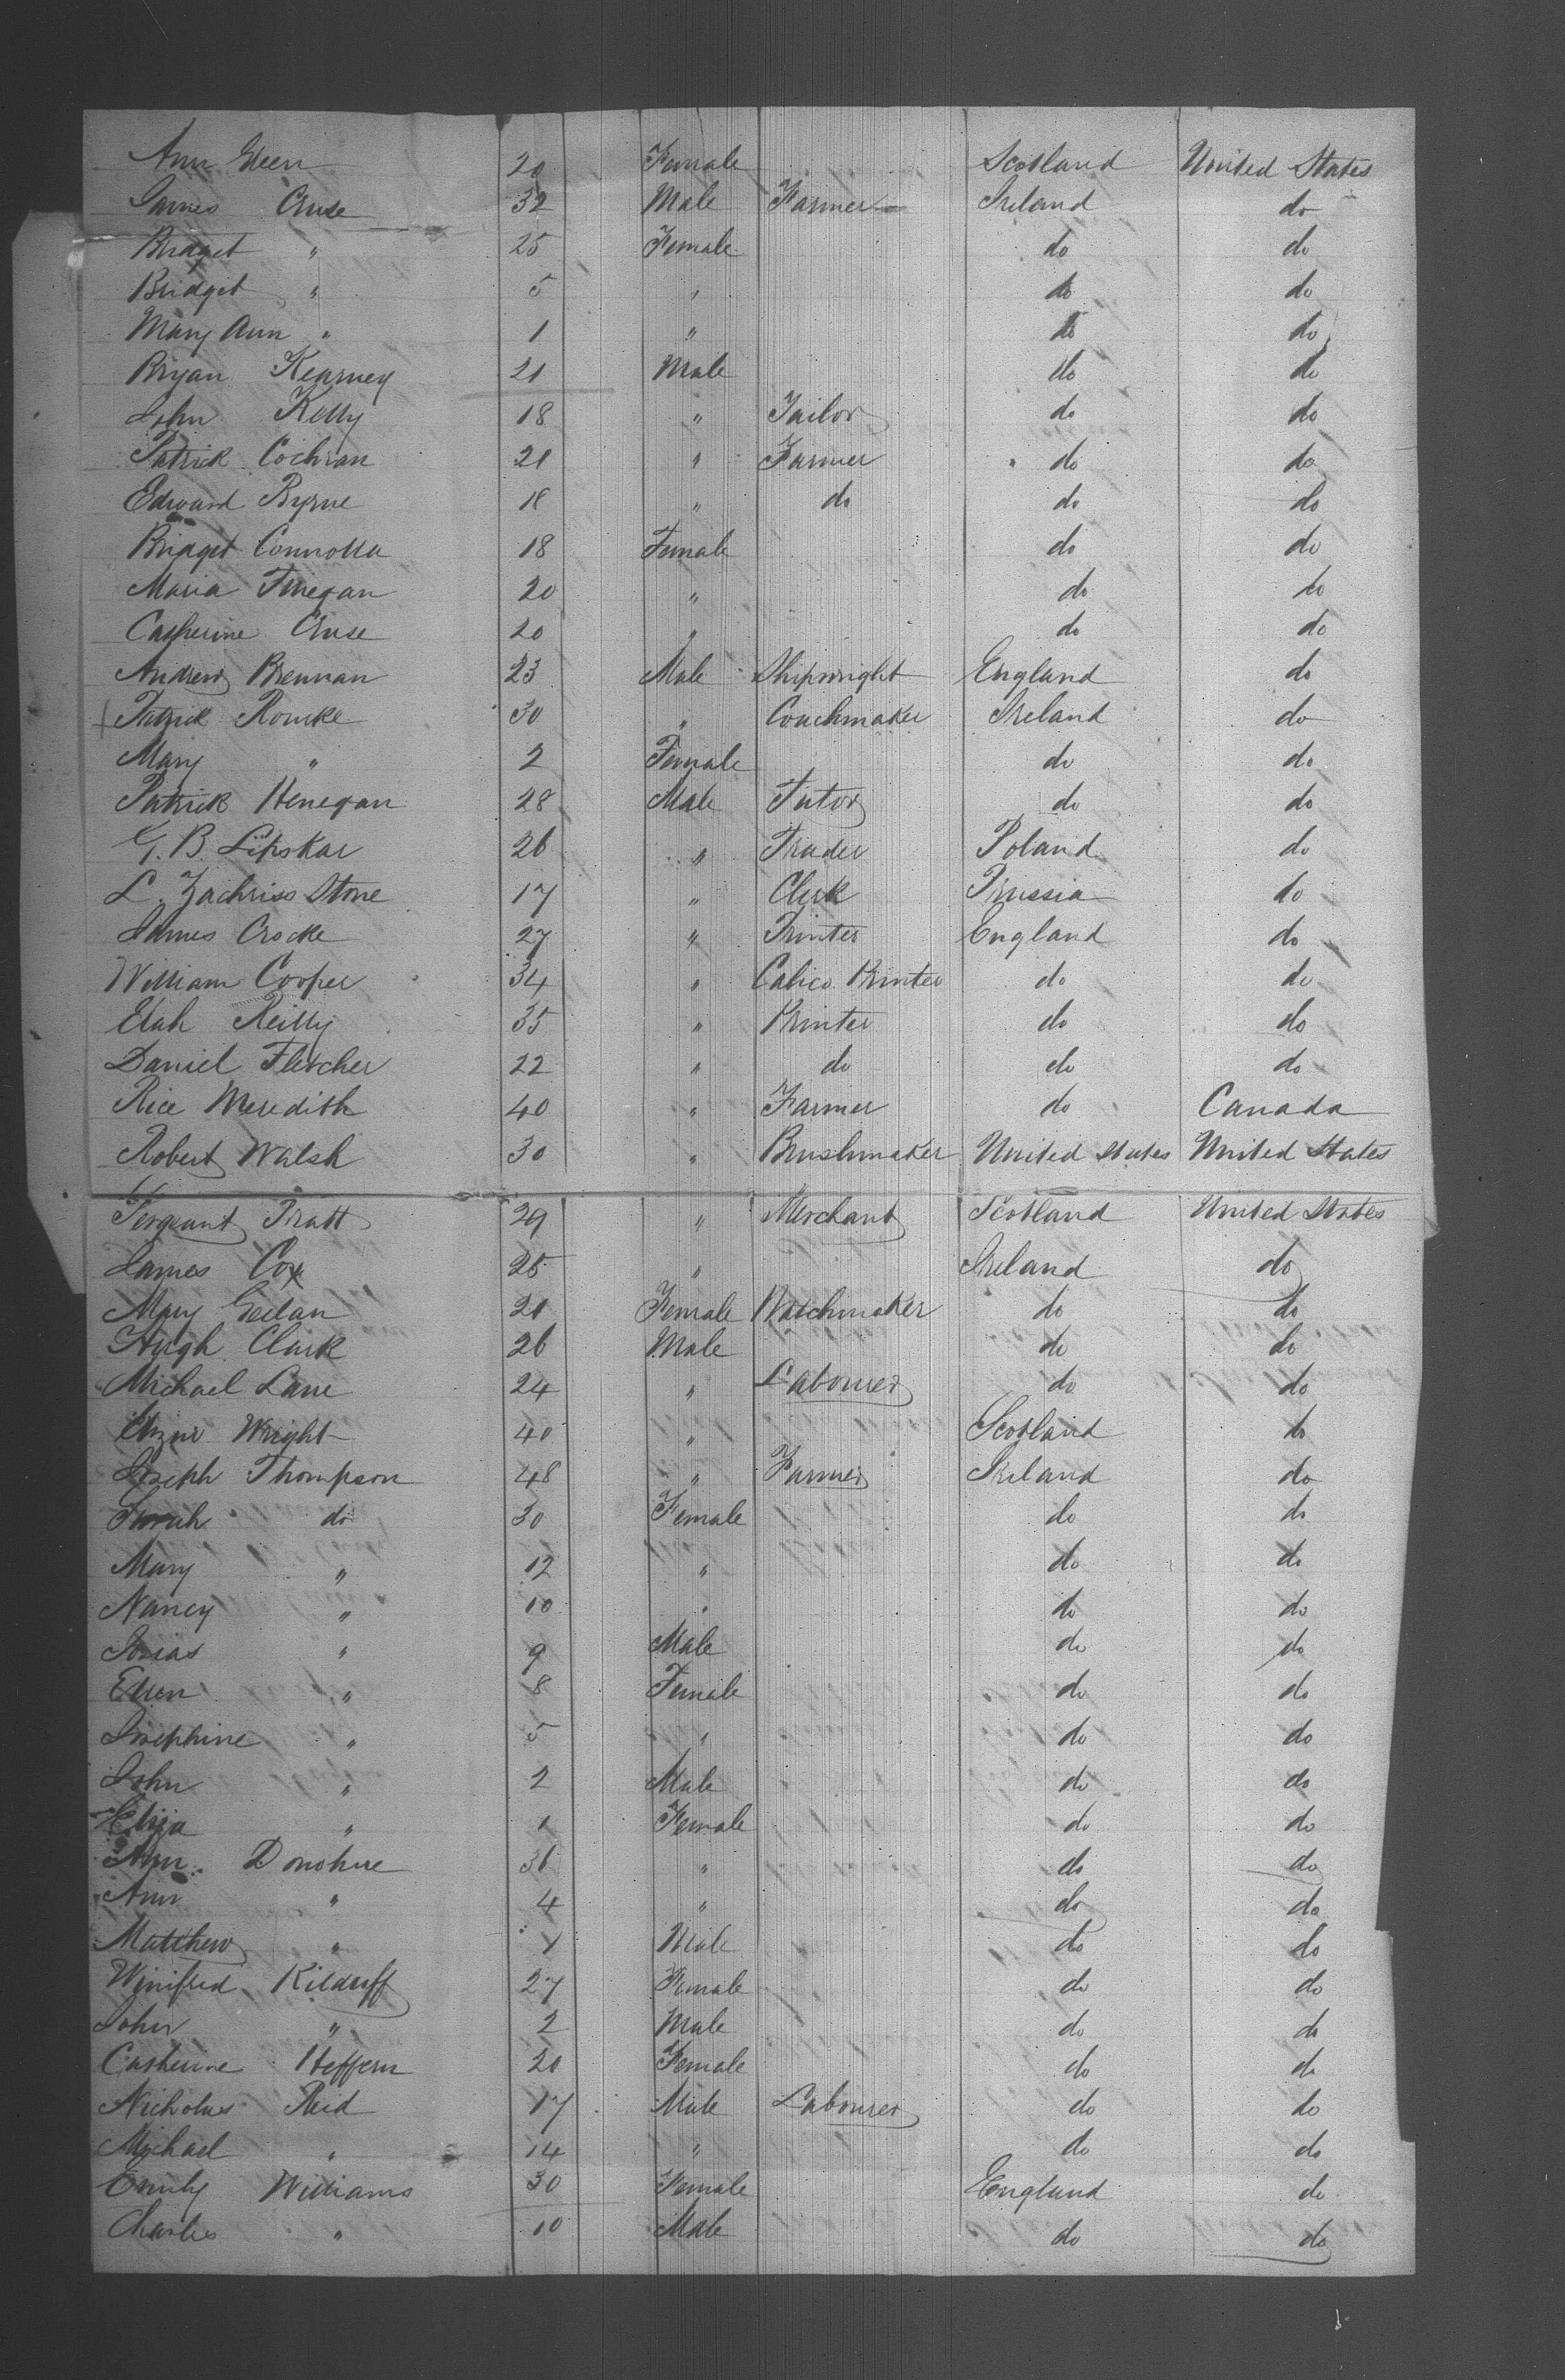 Ann Green 20 Female Scotland United States
James Cruse 32 Male Farmer Ireland do
Bridget " 25 Female do do
Bridget " 5 " do do
Mary Ann " 1 " do do
Bryan Kearney 21 Male do do
John Kelly 18 " Tailor do do
Patrick Cochran 21 " Farmer do do
Edward Byrne 18 " do do do
Bridget Connolla 18 Female do do
Maria Finegan 20 " do do
Catherine Cruse 20 " do do
Andrew Brennan 23 Male Shipwright England do
Patrick Rourke 30 " Coachmaker Ireland do
Mary " 2 Female do do
Patrick Henegan 28 Male Tutor do do
G. B. Lipskar 26 " Trader Poland do
L. Zachriss Stone 17 " Clerk Prussia do
James Crocke 27 " Printer England do
William Cooper 34 " Calico Printer do do
Elah Reilly 35 " Printer do do
Daniel Fletcher 22 " do do do
Rice Meredith 40 " Farmer do Canada
Robert Walsh 30 " Brushmaker United States United States
Sergeant Pratt 29 " Merchant Scotland United States
James Cox 25 " Ireland do
Mary Geelan 21 Female Watchmaker do do
Hugh Clark 26 Male do do
Michael Lane 24 " Labourer do do
Wright 40 " Scotland do
Joseph Thompson 48 " Farmer Ireland do
Sarah do 30 Female do do
Mary " 12 " do do
Nancy " 10 " do do
Josias " 9 Male do do
Ellen " 8 Female do do
Josephine " 5 " do do
John " 2 Male do do
Eliza " 1 Female do do
Ann Donohue 36 " do do
Ann " 4 " do do
Matthew " 1 Male do do
Winifred Kilduff 27 Female do do
John " 2 Male do do
Catherine Heffern 20 Female do do
Nicholas Reid 17 Male Labourer do do
Michael " 14 " do do
Emily Williams 30 Female England do
Charles " 10 Male do do